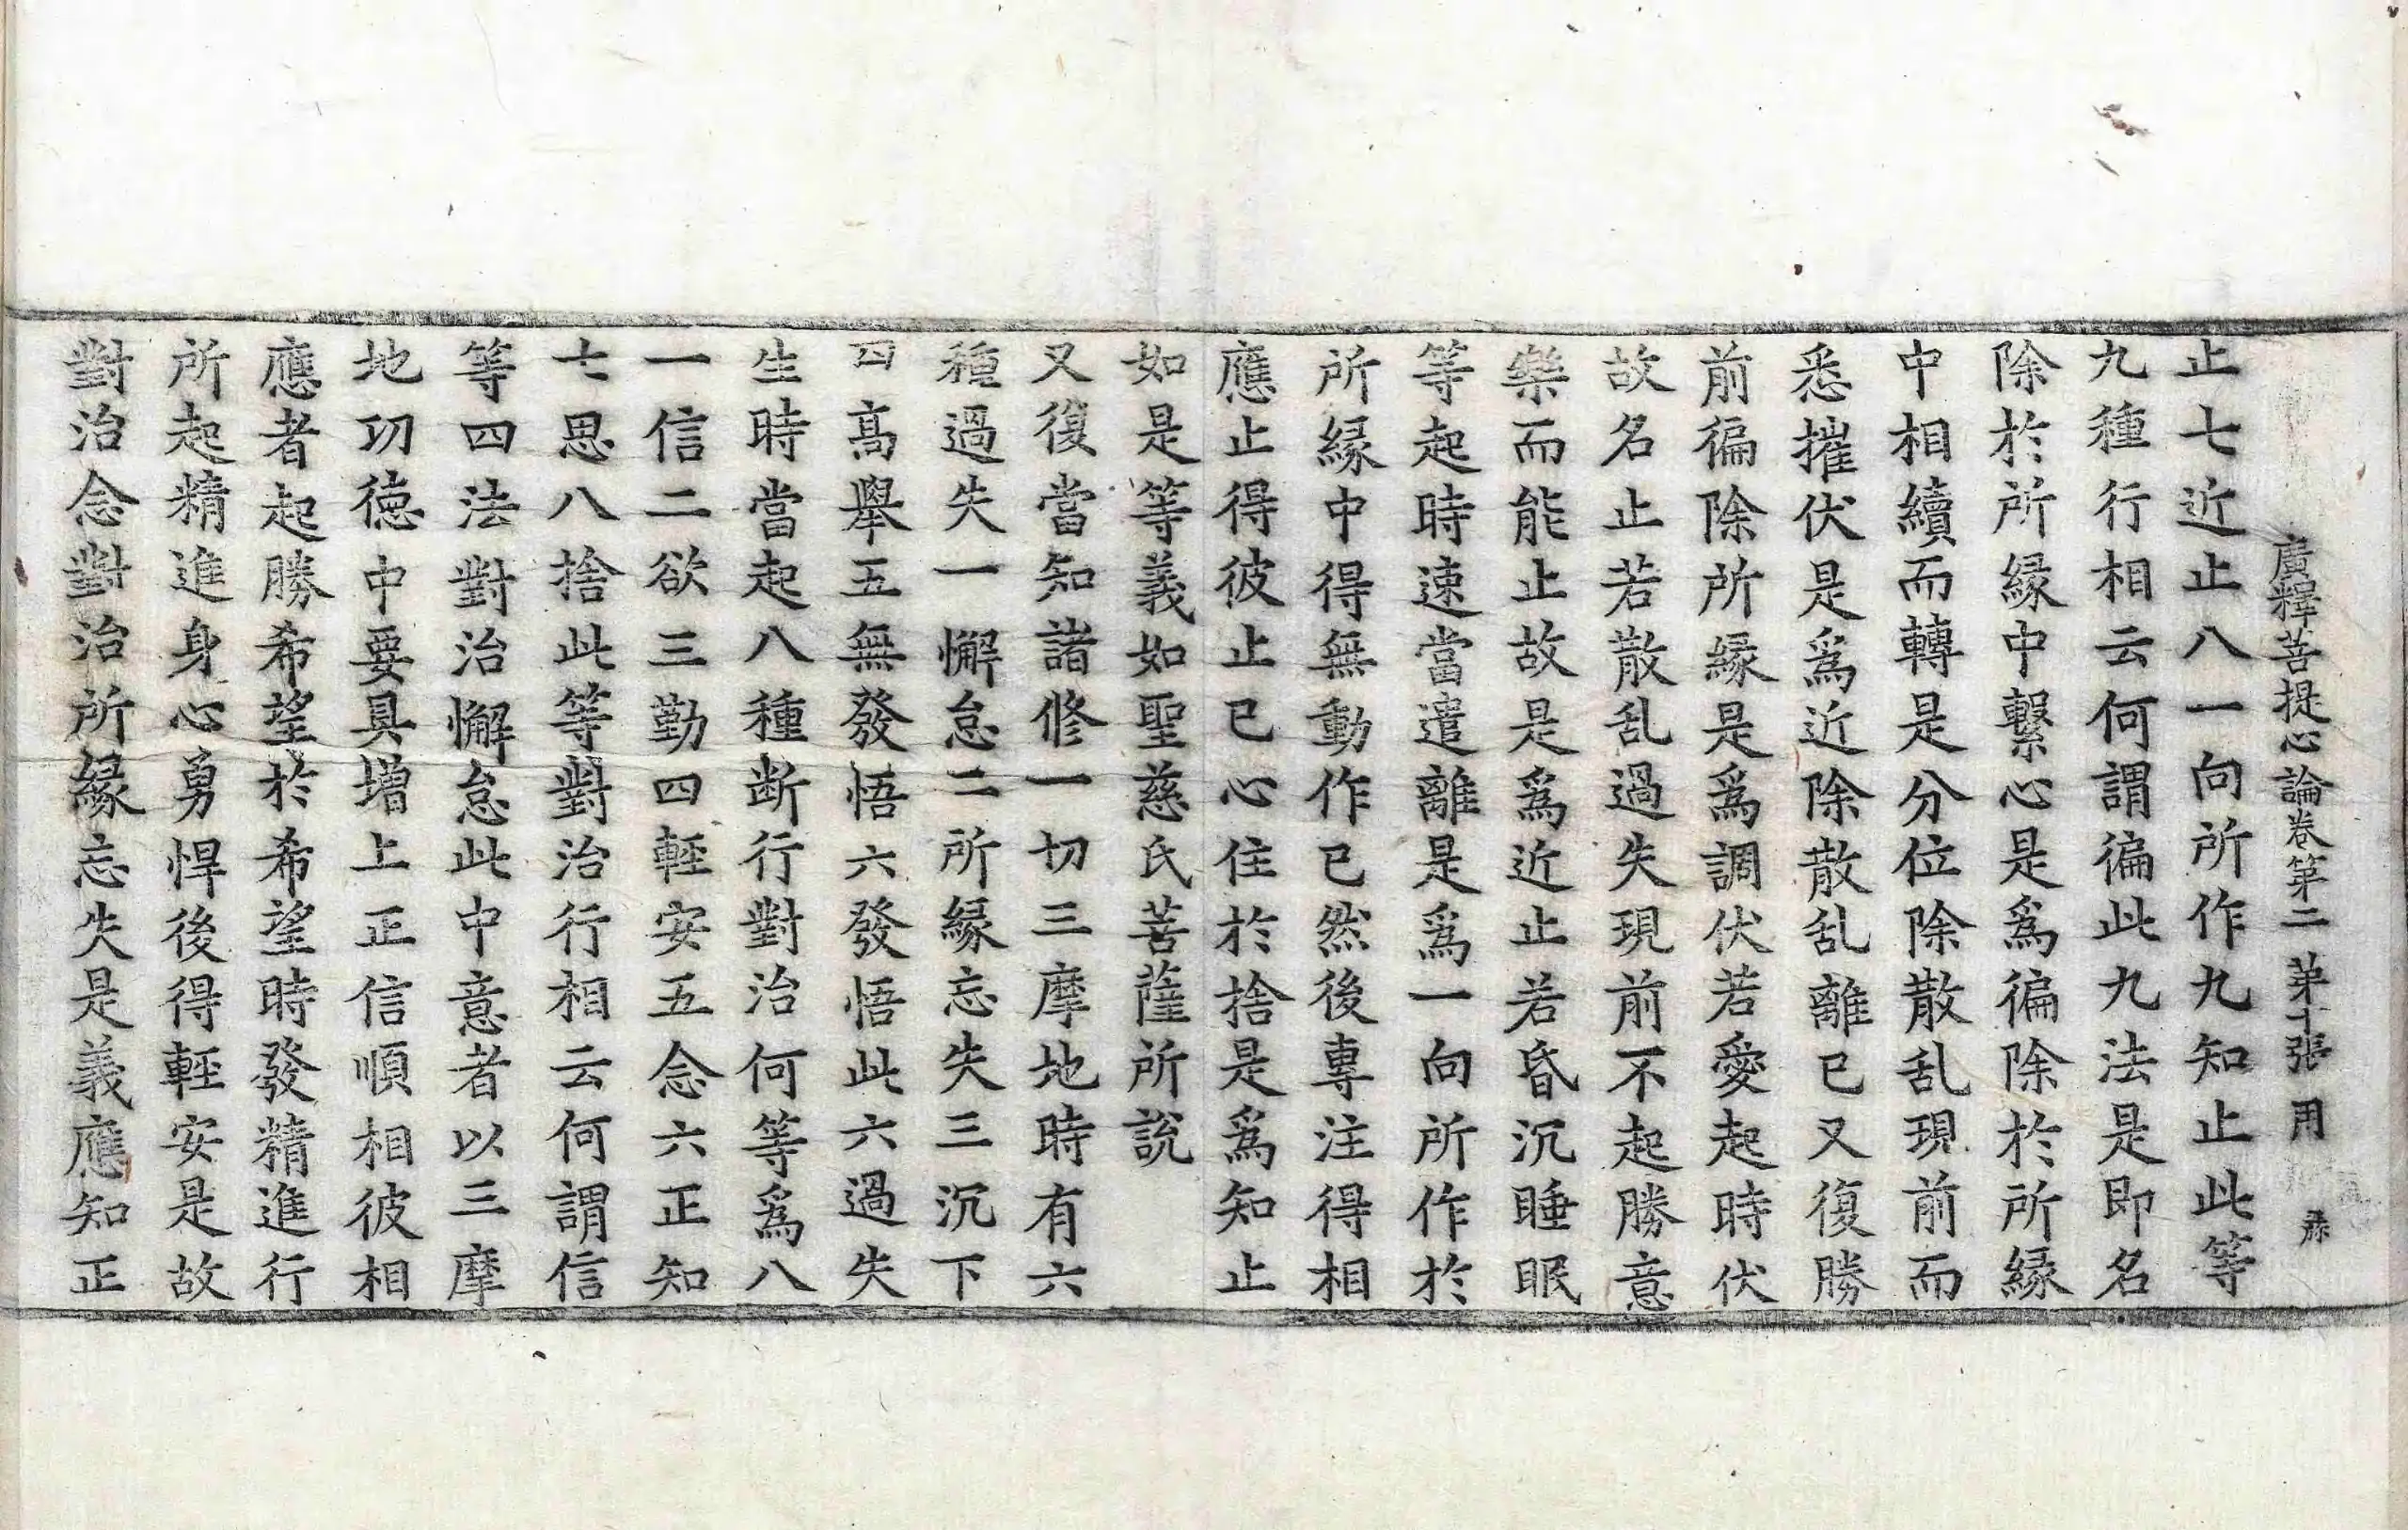 廣釋菩提心論卷第二 苐十張 用
止七近止八一向所作九知止此等
九種行相云何謂徧此九法是即名
除於所緣中繫心是爲徧除於所緣
中相續而轉是分位除散乱現前而
悉摧伏是爲近除散乱離已又復勝
前徧除所緣是爲調伏若愛起時伏
故名止若散乱過失現前不起勝意
樂而能止故是爲近止若昏沉睡眠
等起時速當遣離是爲一向所作於
所緣中得無動作已然後專注得相
應止得彼止已心住於捨是爲知止
如是等義如聖慈氏菩薩所說
又復當知諸修一切三摩地時有六
種過失一懈怠二所緣忘失三沉下
四高舉五無發悟六發悟此六過失
生時當起八種断行對治何等爲八
一信二欲三勤四輕安五念六正知
七思八捨此等對治行相云何謂信
等四法對治懈怠此中意者以三摩
地功德中要具增上正信順相彼相
應者起勝希望於希望時發精進行
所起精進身心勇悍後得輕安是故
對治念對治所緣忘失是義應知正